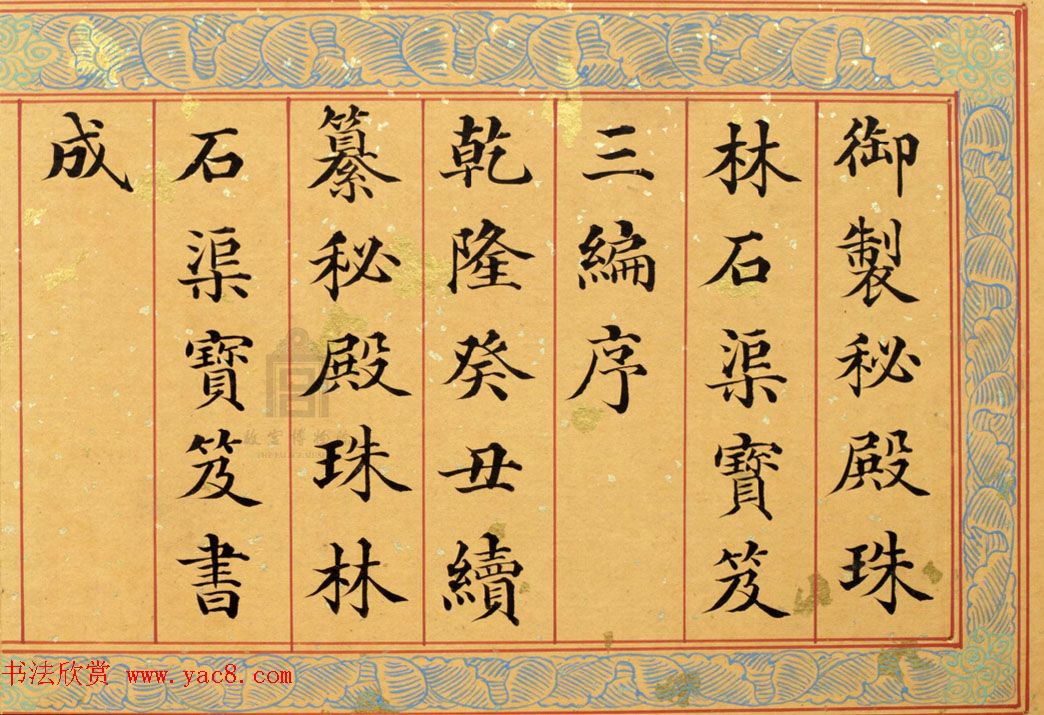 御製秘殿珠
林石渠寶笈
三編序
乾隆癸丑續
纂秘殿珠林
石渠寶笈書
成
故宫博物院
书法欣赏 www.yac8.com